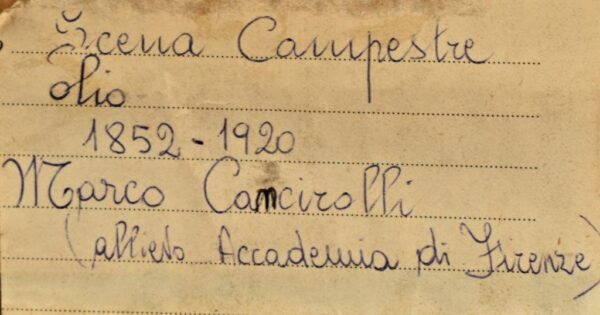 Scena Campestre
Olio
1852-1920
Marco Cancirolli
(allievo Accademia di Firenze)